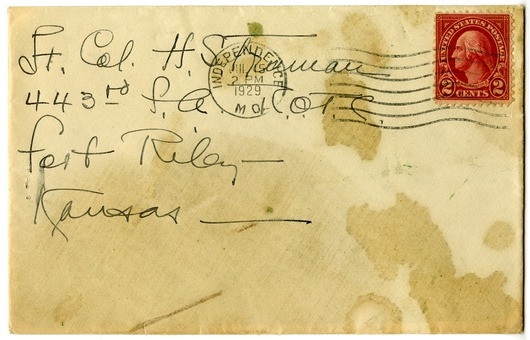 Lt. Col. H.S. Truman
443rd F.A. C.O.T.C.
Fort Riley
Kansas
INDEPENDENCE
JUL 15
2 PM
1929
MO.
UNITED STATES POSTAGE
2 CENTS 2